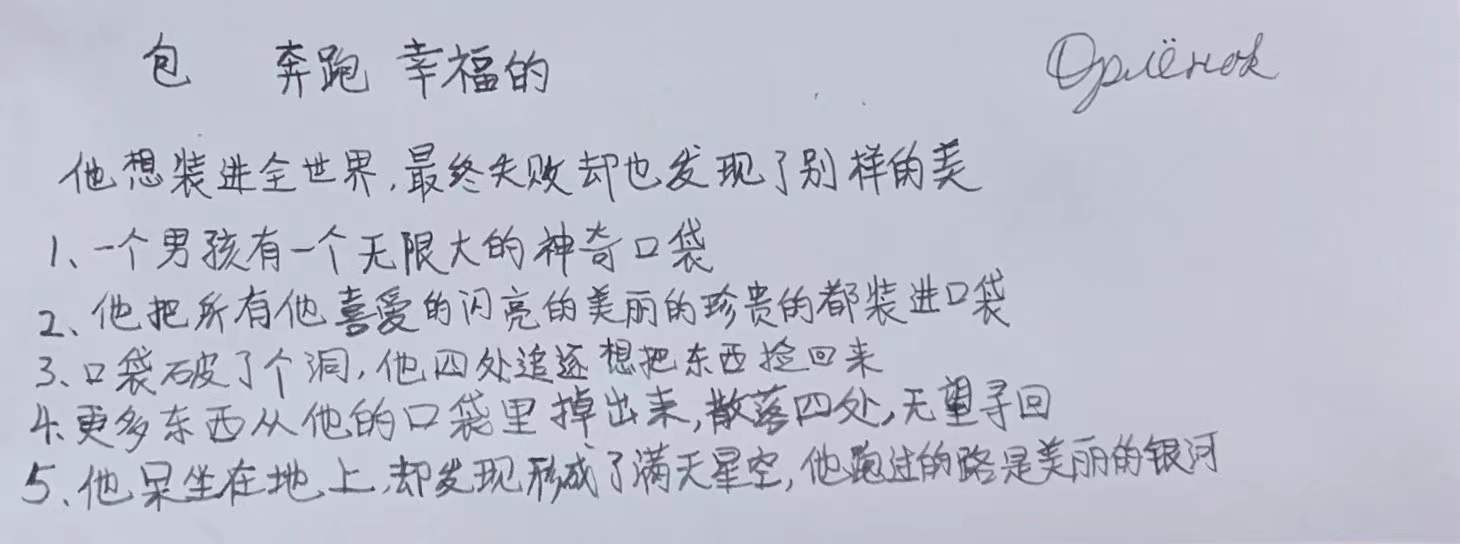 包 奔跑 幸福的 Орлёнок
他想装进全世界,最终失败却也发现了别样的美
1、一个男孩有一个无限大的神奇口袋
2、他把所有他喜爱的闪亮的美丽的珍贵的都装进口袋
3、口袋破了个洞,他四处追逐想把东西捡回来
4.更多东西从他的口袋里掉出来,散落四处,无望寻回
5、他呆坐在地上,却发现形成了满天星空,他跑过的路是美丽的银河